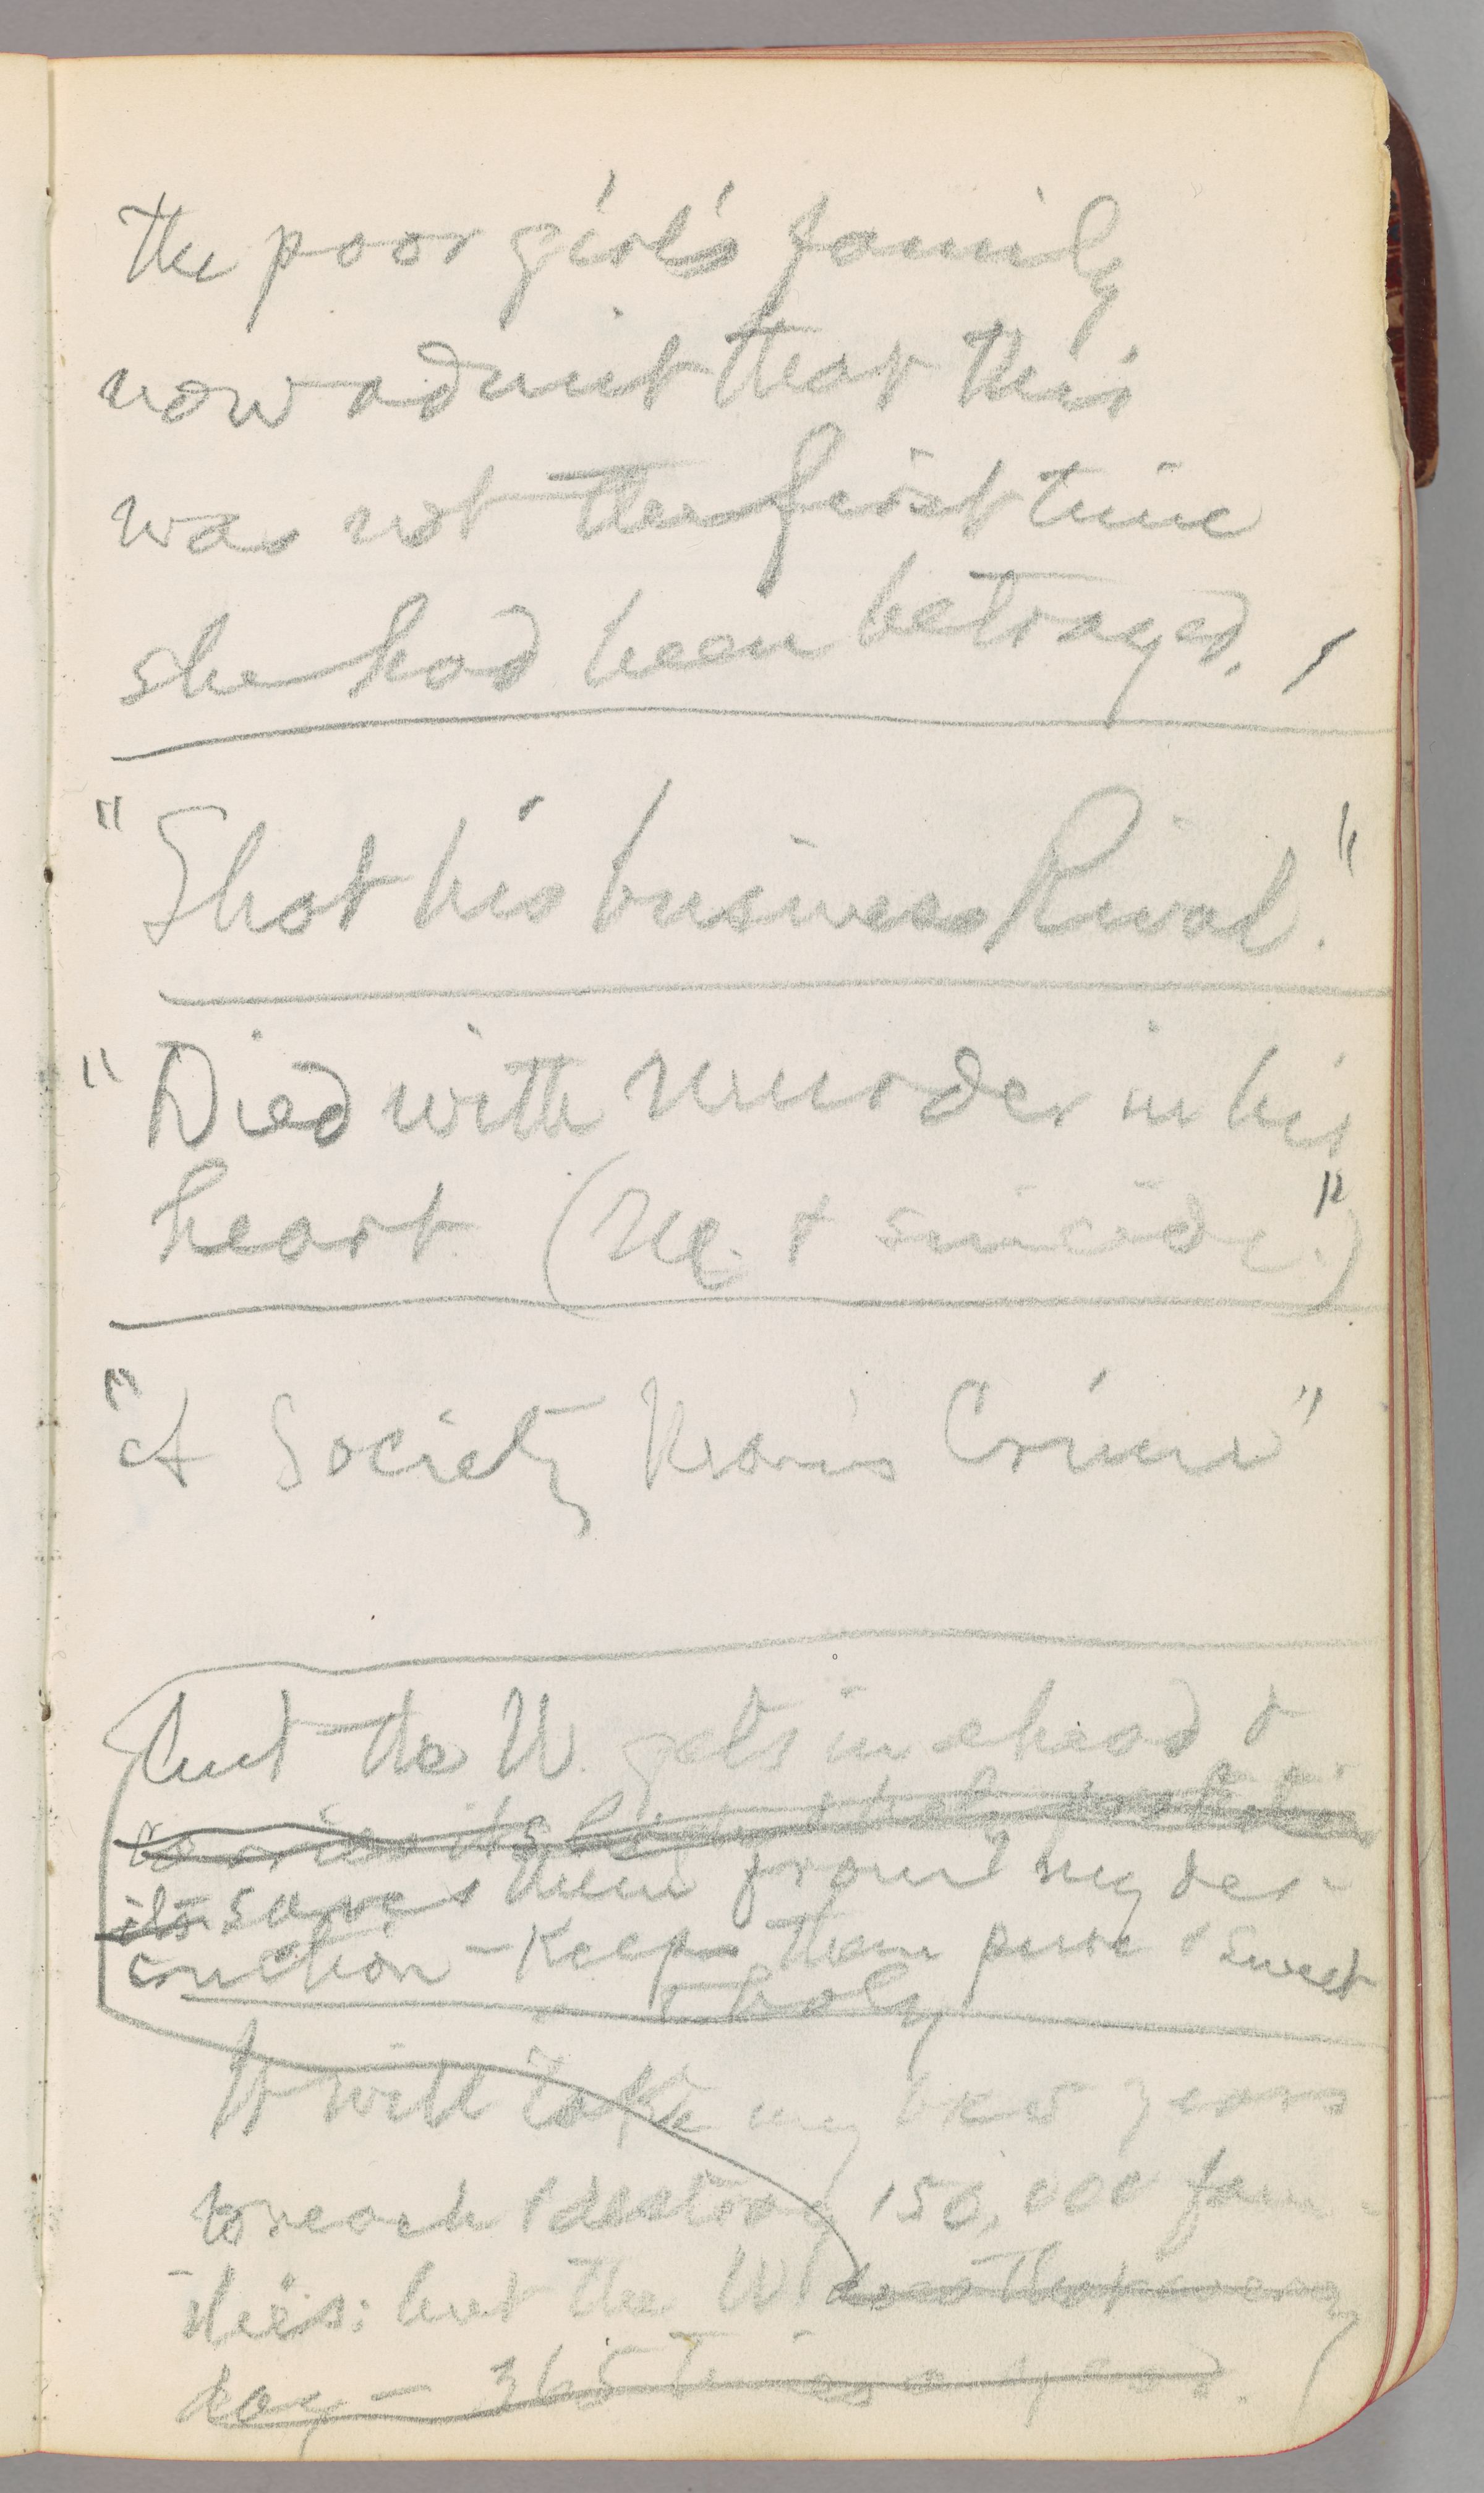 The poor girl's family
now admit that this
was not the first time
she had been betrayed.
"Shot his business Rival."
"Died with murder in his
heart. (M. & suicide.")
"A Society Man's Crime"
but the W. gets in ahead &
carries its
its saves them from my des-
truction - keeps them pure & sweet
& holy
It will take my
years
to reach & destroy 150,000 fam-
ilies: but the W. does that every
day — 365 times a year.